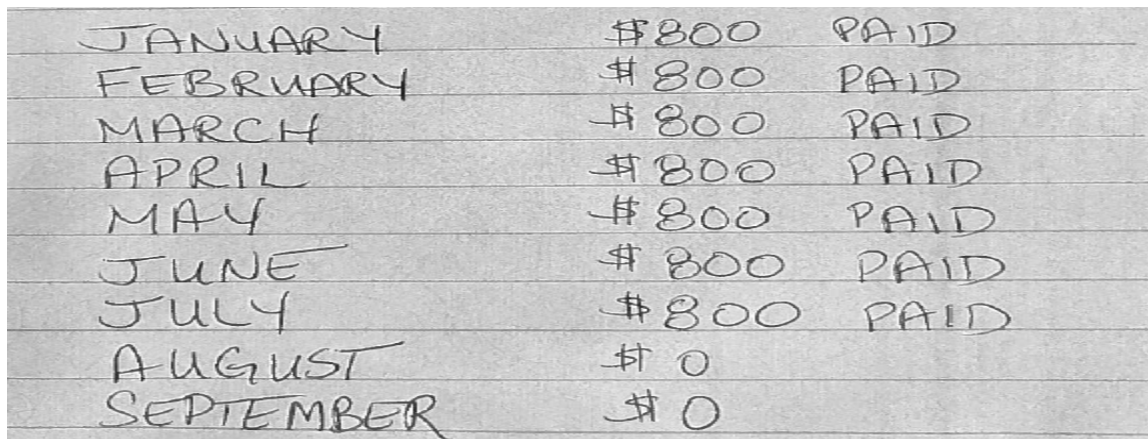 JANUARY $800 PAID
FEBRUARY $800 PAID
MARCH $800 PAID
APRIL $800 PAID
MAY $800 PAID
JUNE $800 PAID
JULY $800 PAID
AUGUST $0
SEPTEMBER $0